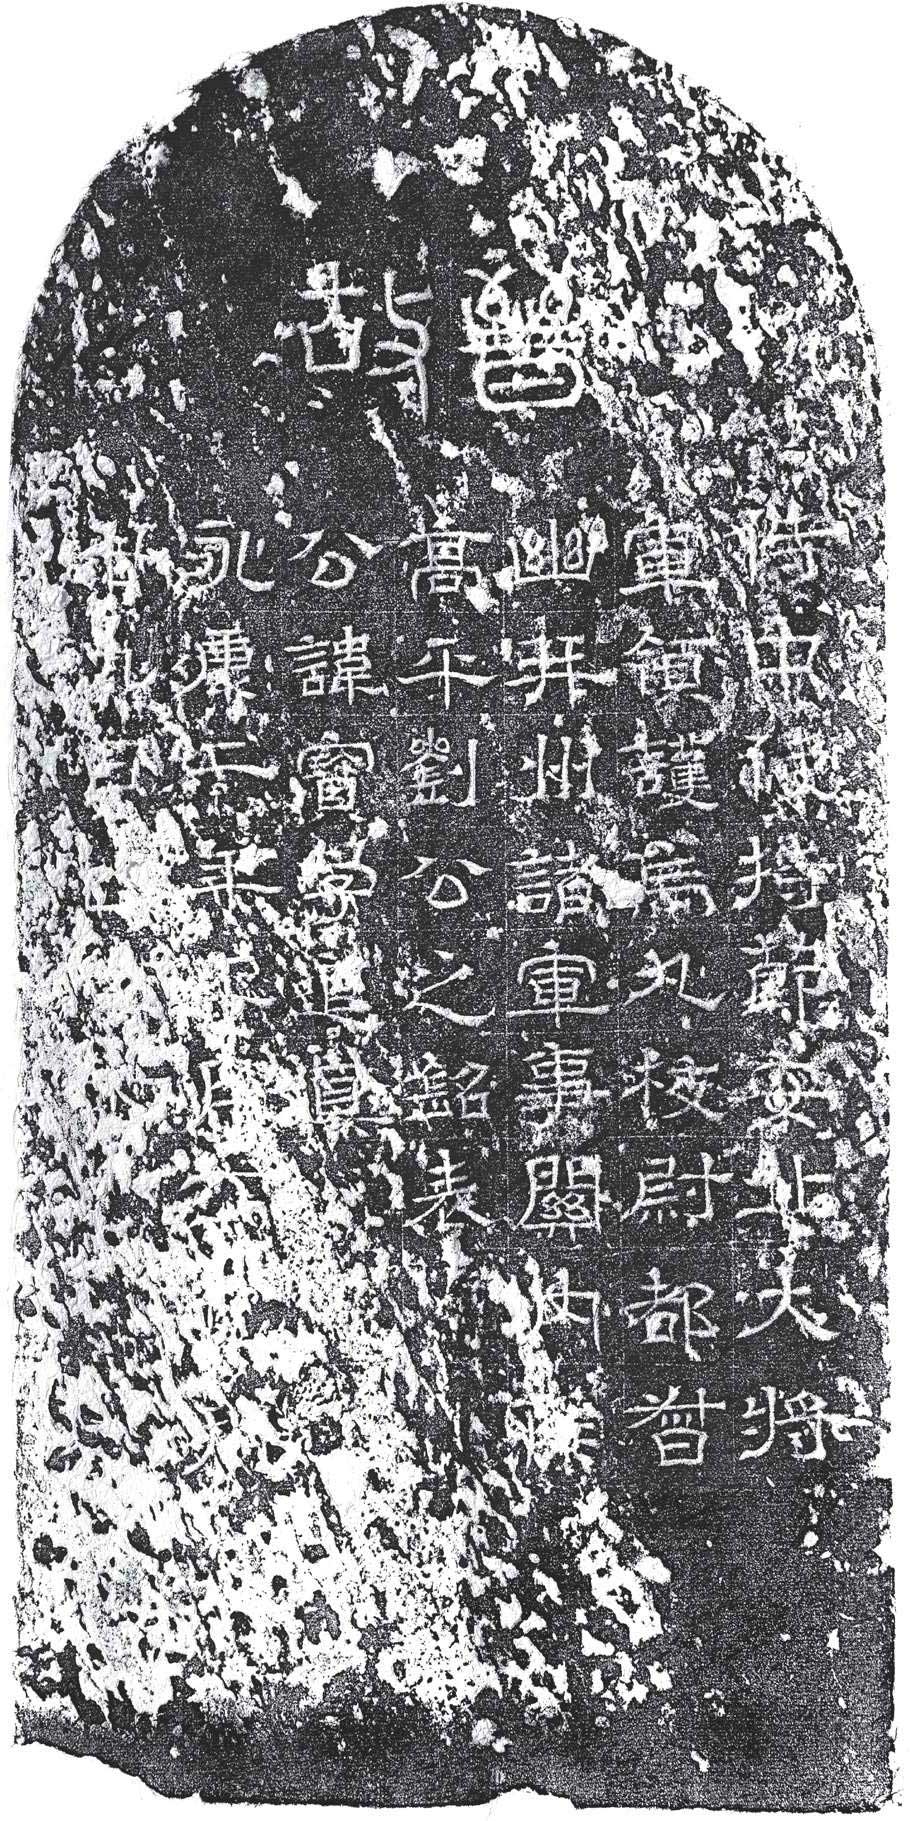 晉故
侍中使持節安北大將
軍領護烏丸校尉都督
幽并州諸軍事關内侯
高平劉公之銘表
公諱寶字道真
永康二年月
九日